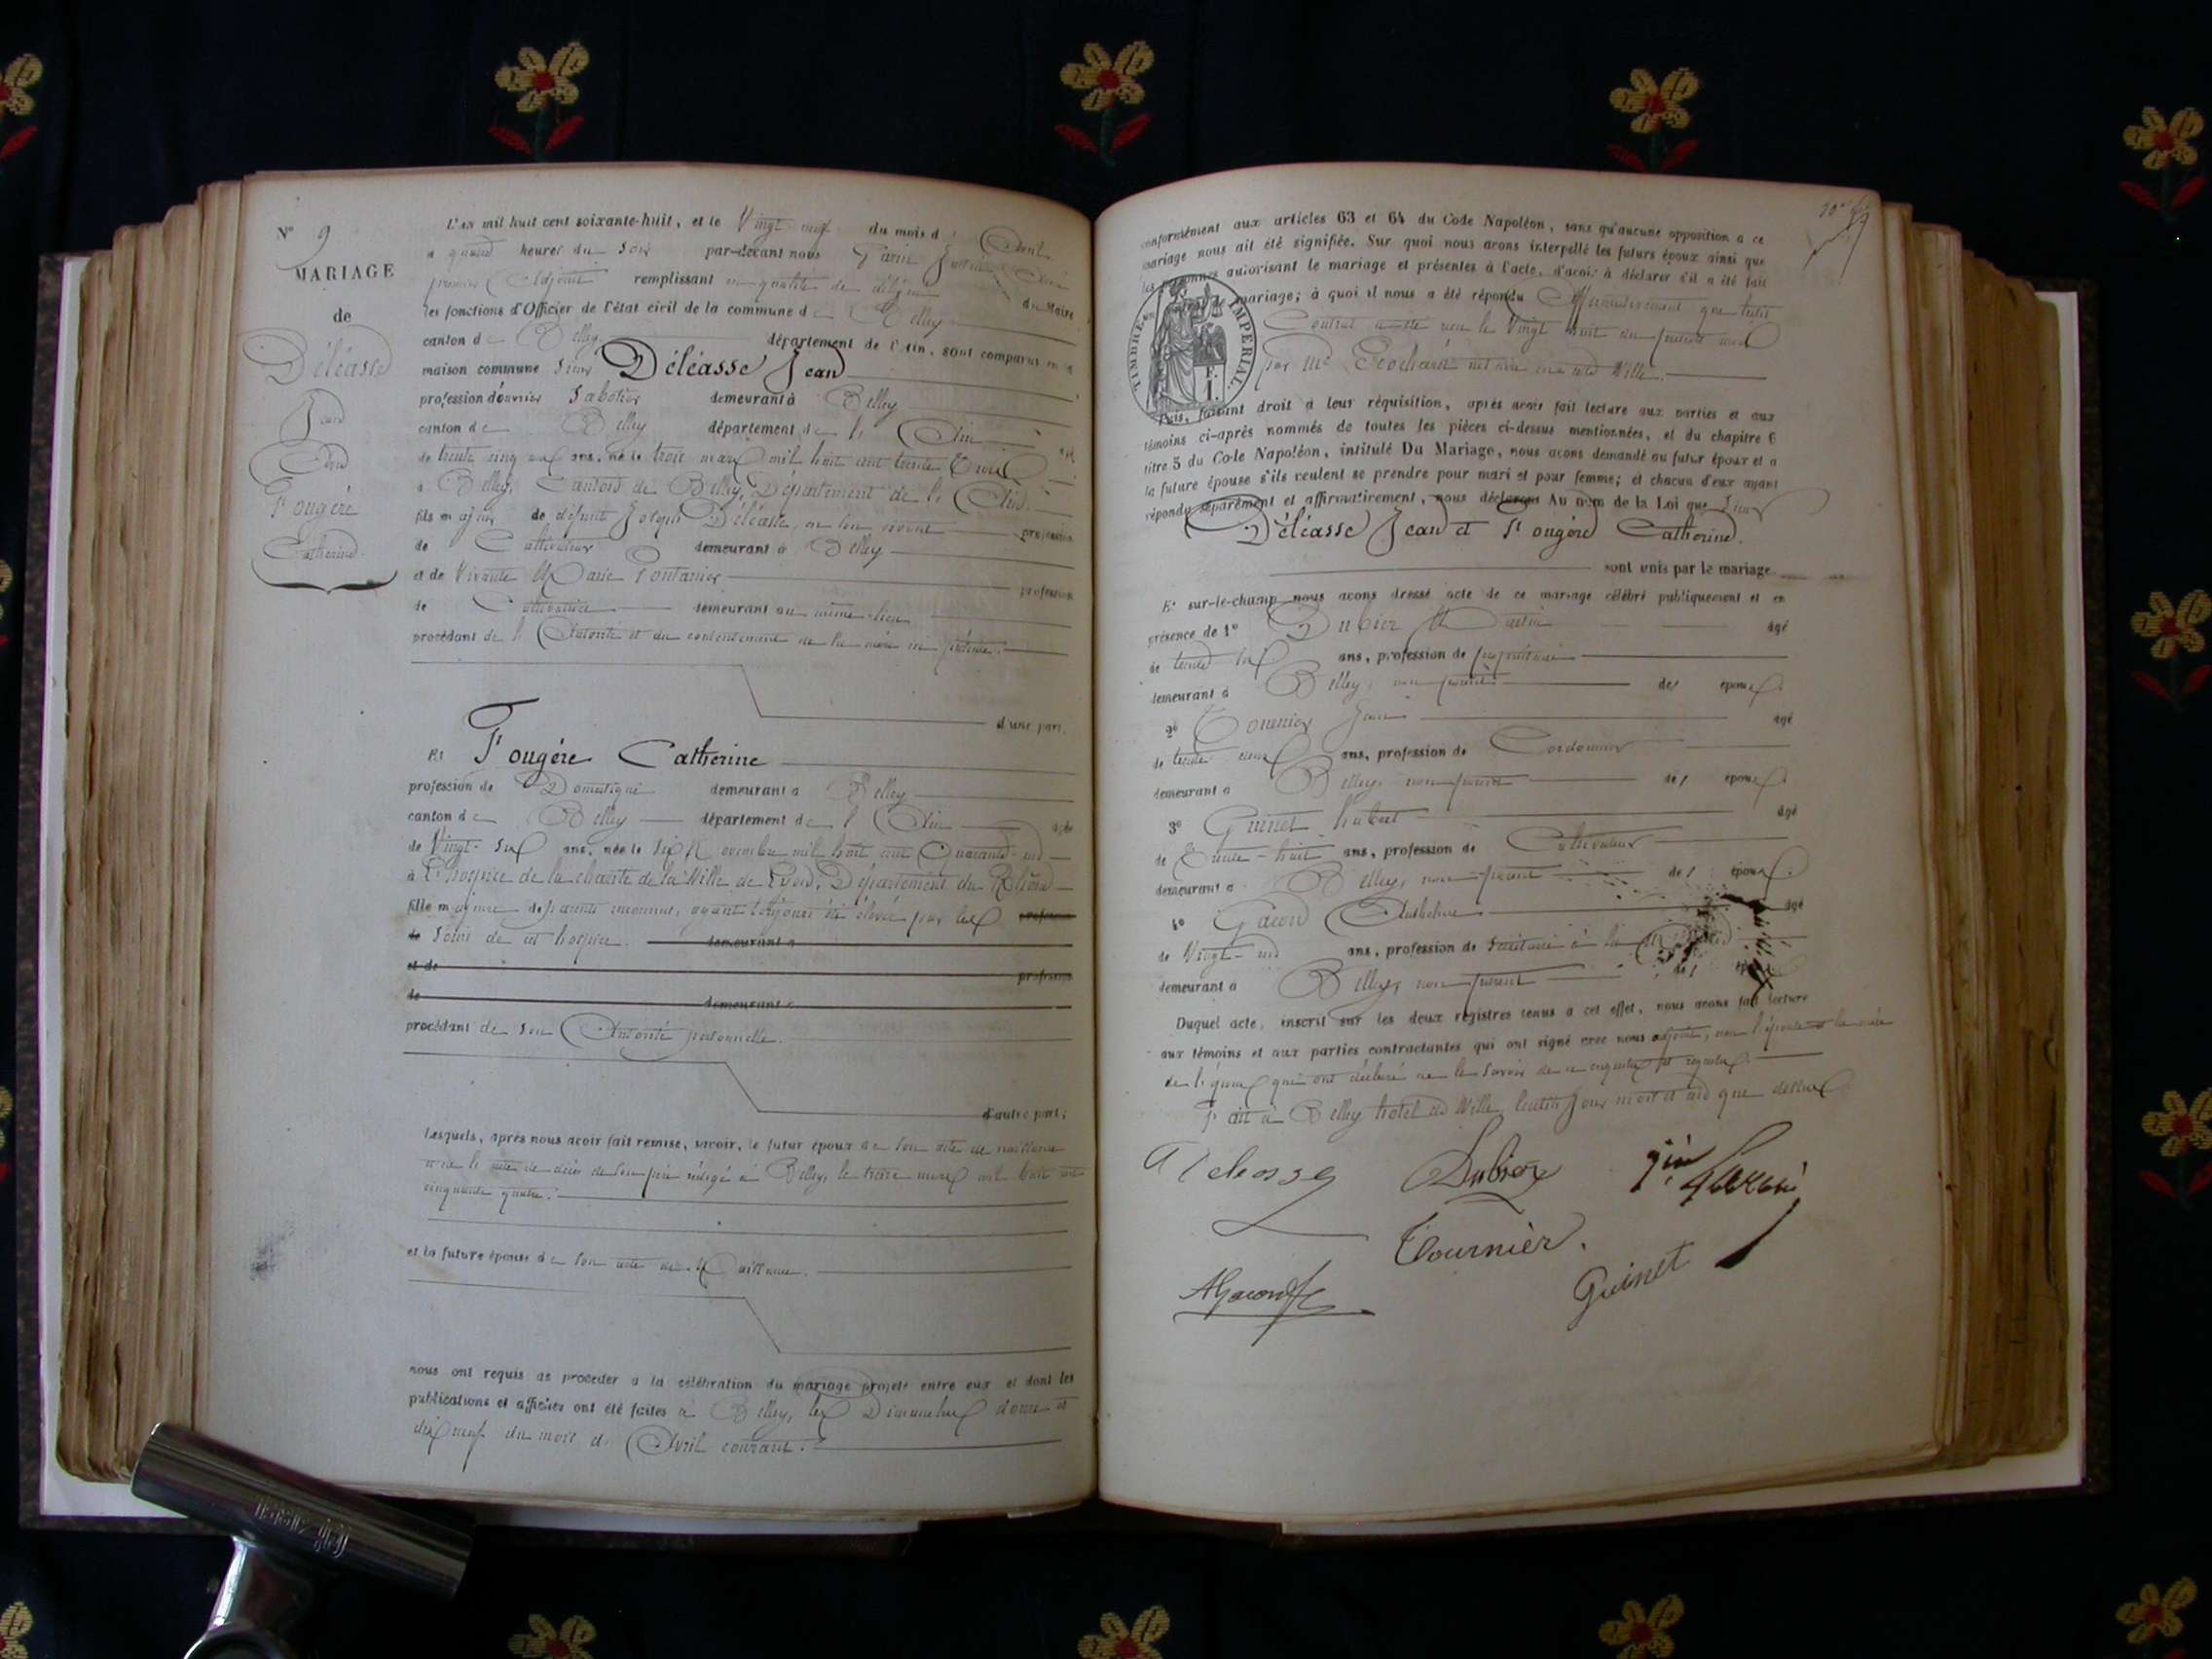 N° 9
MARIAGE
de
Déléasse
Jean
Et
Fougère
Catherine
L'an mil huit cent soixante-huit, et le Vingt neuf du mois d' Avril
à quatre heures du soir par-devant nous
premier Adjoint remplissant en qualité de délégué du Maire
les fonctions d'Officier de l'état civil de la commune de Belley
canton de Belley département de l'Ain, sont comparus en la
maison commune Sieur Déléasse Jean
profession d'ouvrier Sabotier demeurant à Belley
canton de Belley département de l'Ain âgé
de trente cinq ans, né le trois mars mil huit cent trente trois
à Belley, Canton de Belley, Département de l'Ain
fils majeur de défunt Joseph Déléasse, en son vivant profession
de Cultivateur demeurant à Belley
et de Vivante Marie Pontanier profession
de Cultivatrice demeurant au même lieu
procédant de l'Autorité et du consentement de sa mère ici présente.
d'une part.
Et Fougère Catherine
profession de Domestique demeurant à Belley
canton de Belley département de l'Ain âgée
de Vingt-six ans, née le six Novembre mil huit cent Quarante-un
à L'hospice de la charité de la Ville de Lyon, Département du Rhône
fille majeure de parents inconnus, ayant toujours été élevée par les profession
de soins de cet hospice. demeurant à
et de profession
de demeurant à
procédant de son Autorité personnelle.
d'autre part;
Lesquels, après nous avoir fait remise, savoir, le futur époux de son acte de naissance
et de l'acte de décès de son père rédigé à Belley, le treize mars mil huit cent
cinquante quatre.
et la future épouse de son acte de Naissance.
nous ont requis de procéder à la célébration du mariage projeté entre eux et dont les
publications et affiches ont été faites à Belley, les Dimanches douze et
dix neuf du mois d'Avril courant.
conformément aux articles 63 et 64 du Code Napoléon, sans qu'aucune opposition à ce
mariage nous ait été signifiée. Sur quoi nous avons interpellé les futurs époux ainsi que
les personnes autorisant le mariage et présentes à l'acte, d'avoir à déclarer s'il a été fait
de mariage; à quoi il nous a été répondu Affirmativement que ledit
Contrat a été reçu le Vingt huit du présent mois
par Me notaire en cette Ville.
TIMBRE IMPERIAL
F.
1.
Puis, faisant droit à leur réquisition, après avoir fait lecture aux parties et aux
témoins ci-après nommés de toutes les pièces ci-dessus mentionnées, et du chapitre 6
titre 5 du Code Napoléon, intitulé Du Mariage, nous avons demandé au futur époux et à
la future épouse s'ils veulent se prendre pour mari et pour femme; et chacun d'eux ayant
répondu séparément et affirmativement, nous déclarons Au nom de la Loi que Sieur
Déléasse Jean et Fougère Catherine.
sont unis par le mariage.
Et sur-le-champ nous avons dressé acte de ce mariage célébré publiquement et en
présence de 1° Dubiez âgé
de trente six ans, profession de propriétaire
demeurant à Belley, non parent des époux.
2° Tournier Jean âgé
de trente ans, profession de Cordonnier
demeurant à Belley, non parent des époux.
3° Guinet Hubert âgé
de Trente-huit ans, profession de Cultivateur
demeurant à Belley, non parent des époux.
4° Gacon Anthelme âgé
de Vingt-un ans, profession de Secrétaire à la
demeurant à Belley, non parent des époux
Duquel acte, inscrit sur les deux registres tenus à cet effet, nous avons fait lecture
aux témoins et aux parties contractantes qui ont signé avec nous adjoint, non l'épouse et la mère
de l'époux qui ont déclaré ne le savoir de ce enquises et requises.
Fait à Belley hôtel de Ville, lesdits jour mois et an que dessus
Dubiez
Tournier.
Guinet
AGacon